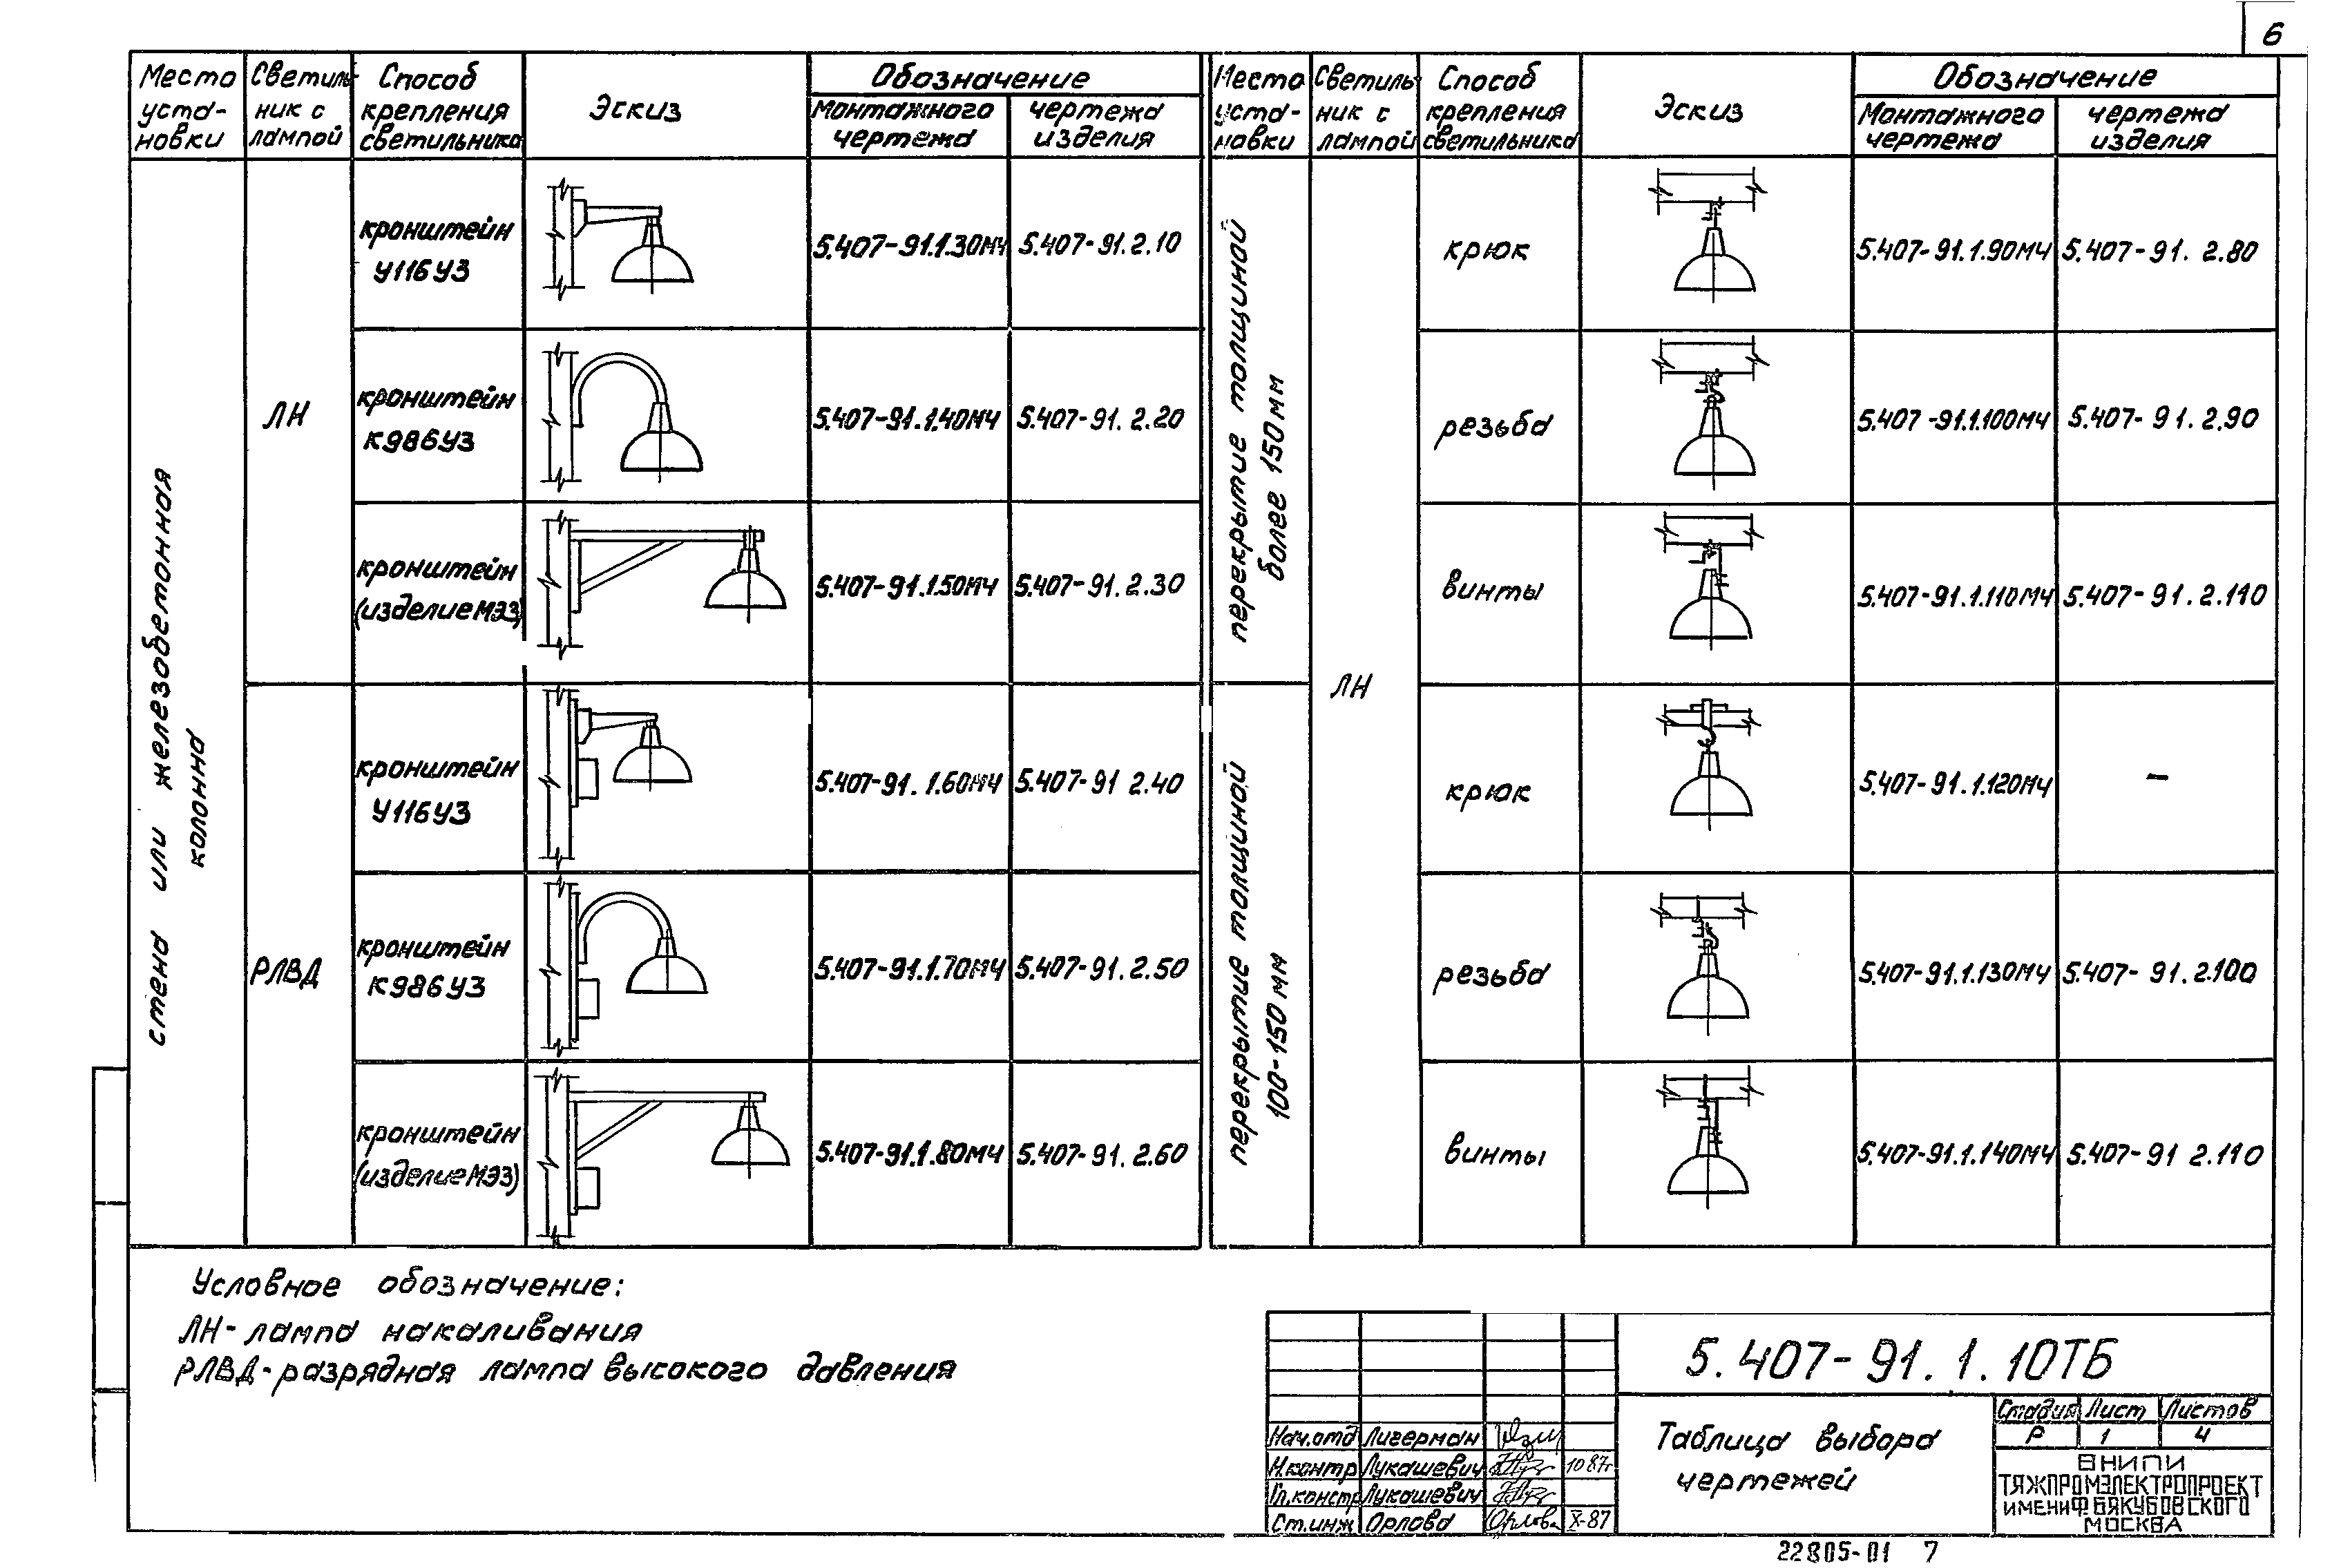 6
Место установки
Светильник с лампой
Способ крепления светильника
Эскиз
Обозначение
монтажного чертежа
чертежа изделия
стена или железобетонная колонна
ЛН
кронштейн У116У3
5.407-91.1.30МЧ
5.407-91.2.10
кронштейн К986У3
5.407-91.1.40МЧ
5.407-91.2.20
кронштейн (изделие МЭЗ)
5.407-91.1.50МЧ
5.407-91.2.30
РЛВД
кронштейн У116У3
5.407-91.1.60МЧ
5.407-91 2.40
кронштейн К986У3
5.407-91.1.70МЧ
5.407-91.2.50
кронштейн (изделие МЭЗ)
5.407-91.1.80МЧ
5.407-91.2.60
Место установки
Светильник с лампой
Способ крепления светильника
Эскиз
Обозначение
Монтажного чертежа
чертежа изделия
перекрытие толщиной более 150мм
ЛН
крюк
5.407-91.1.90МЧ
5.407-91.2.80
резьба
5.407-91.1.100МЧ
5.407-91.2.90
винты
5.407-91.1.110МЧ
5.407-91.2.110
перекрытие толщиной 100-150мм
крюк
5.407-91.1.120МЧ
–
резьба
5.407-91.1.130МЧ
5.407-91.2.100
винты
5.407-91.1.140МЧ
5.407-91 2.110
Условное обозначение:
ЛН-лампа накаливания
РЛВД-разрядная лампа высокого давления
5.407-91.1.10ТБ
Таблица выбора
чертежей
Стадия Лист Листов
Р 1 4
ВНИПИ
ТЯЖПРОМЭЛЕКТРОПРОЕКТ
ИМЕНИ Ф.Б.ЯКУБОВСКОГО
МОСКВА
Нач.отд Лигерман
Н.контр Лукашевич 10 87г
Гл.констр Лукашевич
Ст.инж Орлова Орлова X-87
22805-01 7